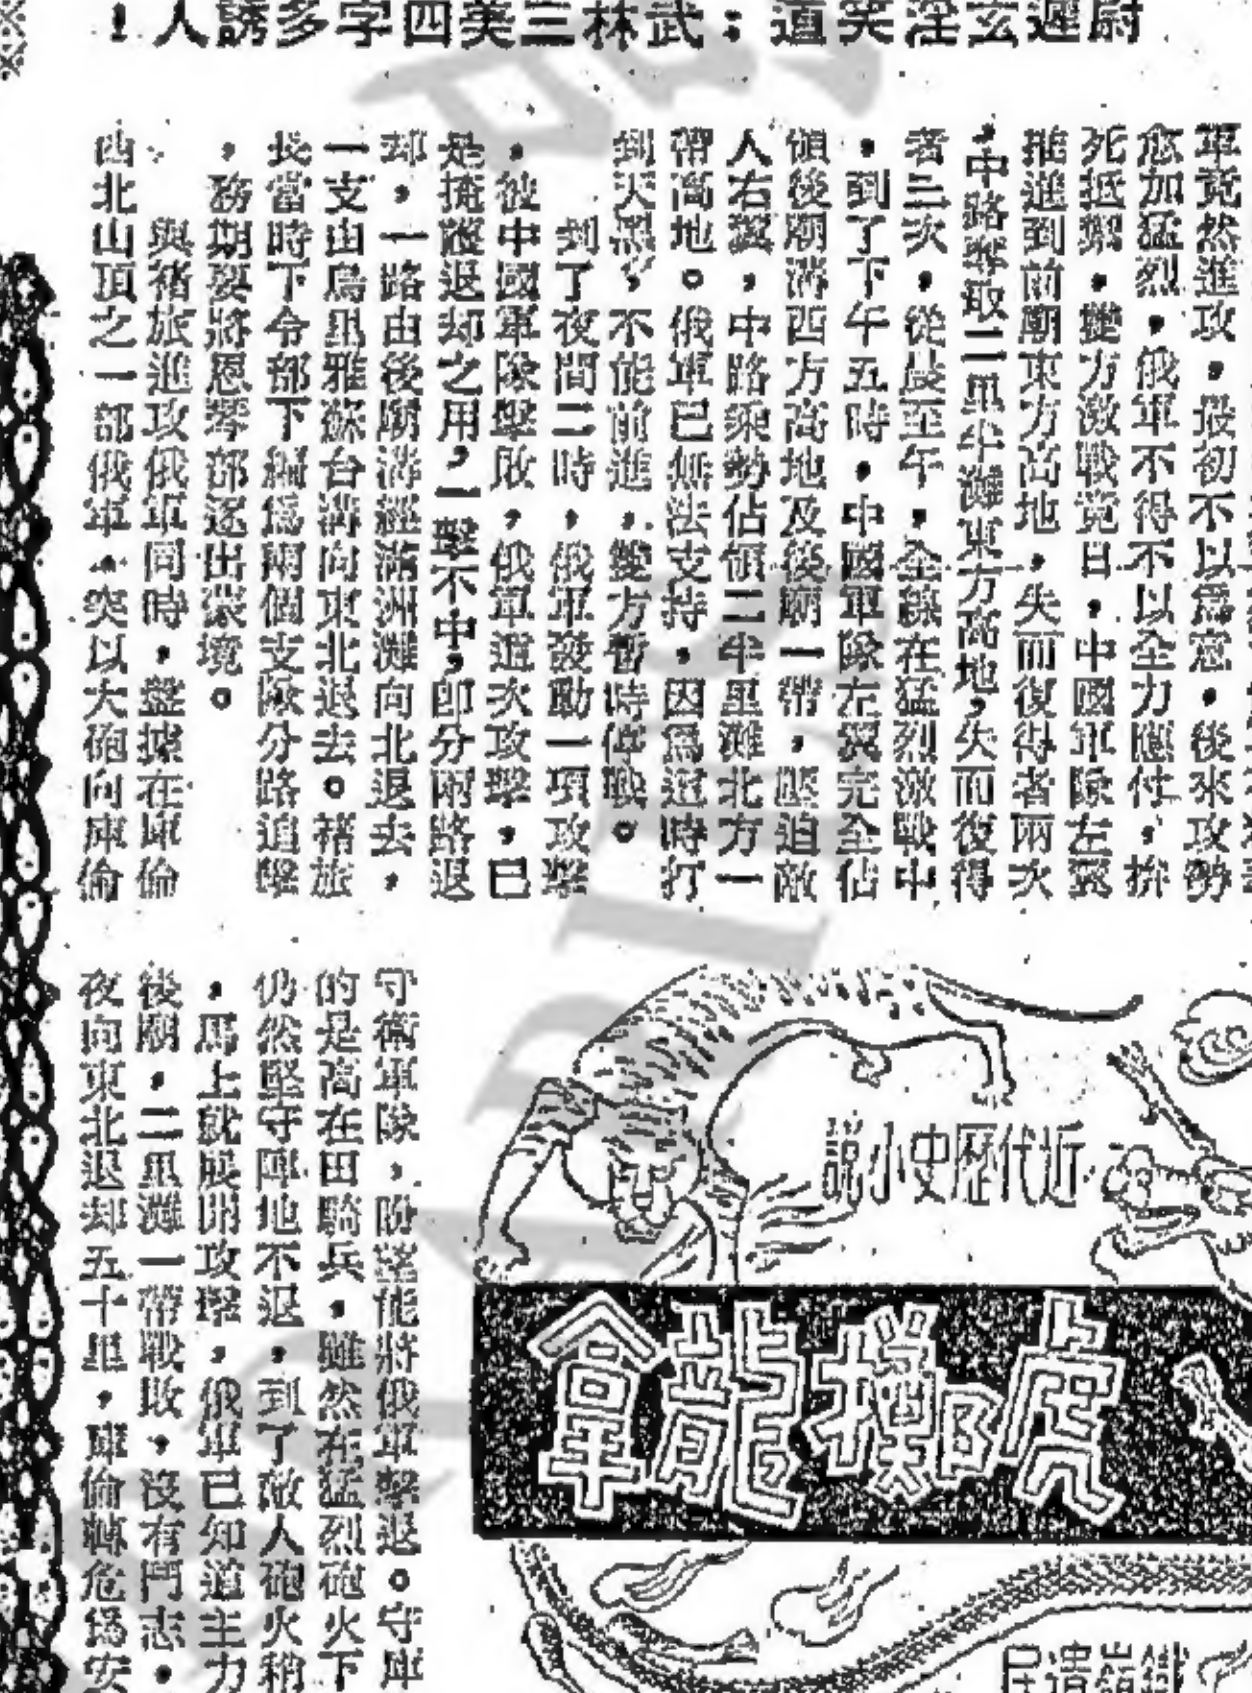 尉遲玄淫笑道；武林三美四字多誘人！
軍竟然進攻，最初不以爲意，後來攻勢
愈加猛烈，俄軍不得不以全力應付，拚
死抵禦，雙方激戰竟日，中國軍隊左翼
推進到前廟東方高地，失而復得者兩次
，中路奪取二里半灘東方高地，失而復得
者三次，從晨至午，全線在猛烈激戰中
，到了下午五時，中國軍隊左翼完全佔
領後廟溝西方高地及後廟一帶，壓迫敵
人右翼，中路乘勢佔領二半里灘北方一
帶高地。俄軍已無法支持，因爲這時打
到天黑，不能前進，雙方暫時停戰。
到了夜間二時，俄軍發動一項攻擊
，被中國軍隊擊敗，俄軍這次攻擊，已
是掩護退却之用，一擊不中，即分兩路退
却，一路由後廟溝經滿洲灘向北退去，
一支由烏里雅蘇台溝向東北退去。褚旅
長當時下令部下編爲兩個支隊分路追擊
，務期要將恩琴部逐出蒙境。
與褚旅進攻俄軍同時，盤據在庫倫
西北山頂之一部俄軍，突以大砲向庫倫
近代歷史小說
虎擲龍拿
鐵嶺遺民
守衞軍隊，防堅能將俄軍擊退。守庫
的是高在田騎兵，雖然在猛烈砲火下
仍然堅守陣地不退，到了敵人砲火稍
，馬上就展開攻擊，俄軍已知道主力
後廟，二里灘一帶戰敗，沒有鬥志，
夜向東北退却五十里，庫倫轉危爲安